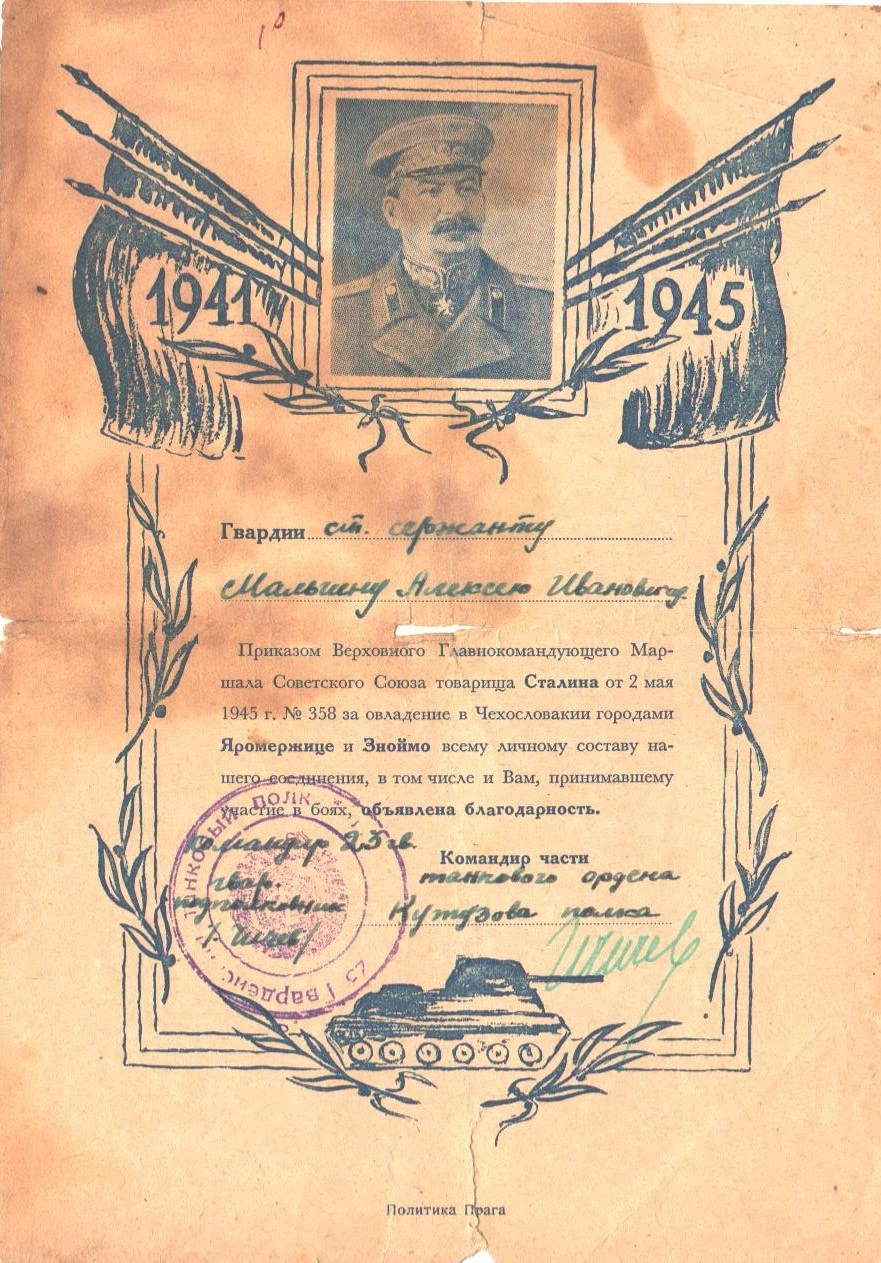 1941 1945
Гвардии ст. сержанту
Мальгину Алексею Ивановичу
Приказом Верховного Главнокомандующего Мар-
шала Советского Союза товарища Сталина от 2 мая
1945 г. № 358 за овладение в Чехословакии городами
Яромержице и Зноймо всему личному составу на-
шего соединения, в том числе и Вам, принимавшему
участие в боях, объявлена благодарность.
Командир части
Командир 25 гв.
танкового ордена
Кутузова полка
гвар.
подполковник
танковый полк
25 Гвардейс
Политика Прага